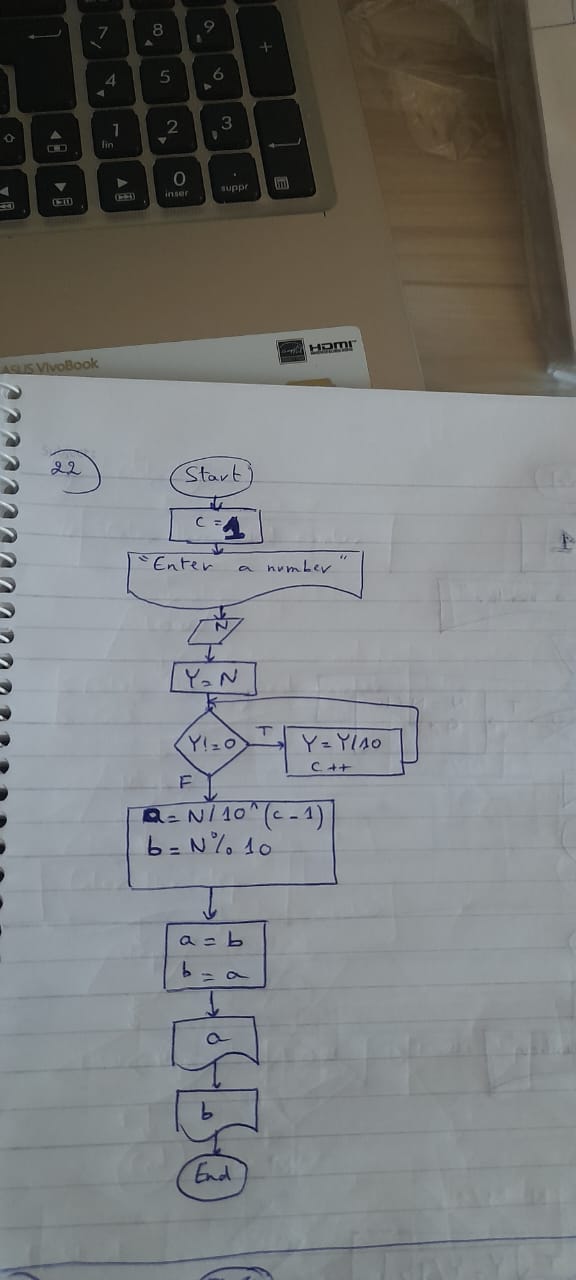 7
8
9
+
4
5
6
1
fin
2
3
0
inser
.
suppr
HDMI
ASUS VivoBook
22
Start
c = 1
"Enter a number"
N
Y = N
Y! = 0
T
Y = Y/10
c ++
F
a = N/10^(c-1)
b = N% 10
a = b
b = a
a
b
End